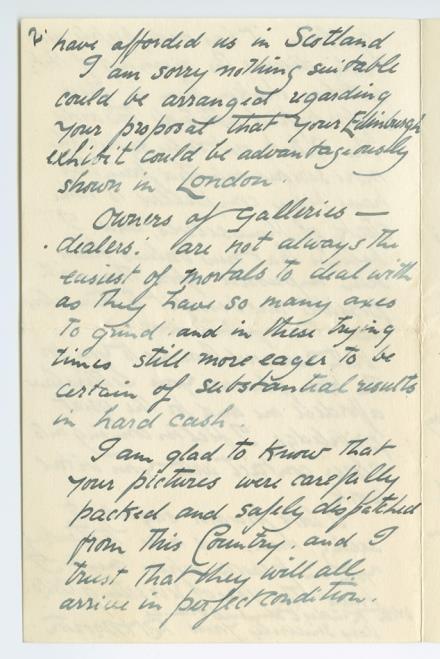 2
have afforded us in Scotland
I am sorry nothing suitable
could be arranged regarding
your proposal that your Edinburgh
exhibit could be advantageously
shown in London
Owners of Galleries —
dealers. are not always the
easiest of mortals to deal with
as they have so many axes
to grind. and in these trying
times still more eager to be
certain of substantial results
in hard cash
I am glad to know that
your pictures were carefully
packed and safely dispatched
from this Country. and I
trust that they will all
arrive in perfect condition.